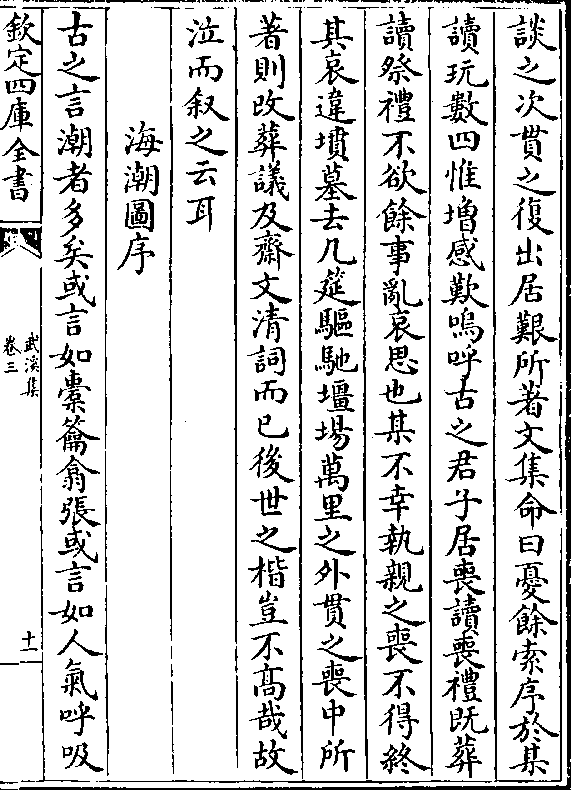 談之次貫之復出居艱所著文集命曰憂餘索序於某
讀玩數四惟増感歎嗚呼古之君子居喪讀喪禮既葬
讀祭禮不欲餘事亂哀思也某不幸執親之喪不得終
其哀違墳墓去几筵驅馳壃場萬里之外貫之喪中所
著則改葬議及齋文清詞而已後世之楷豈不髙哉故
泣而叙之云耳
海潮圖序
古之言潮者多矣或言如橐籥翕張或言如人氣呼吸
欽定四庫全書
武溪集
卷三
十一